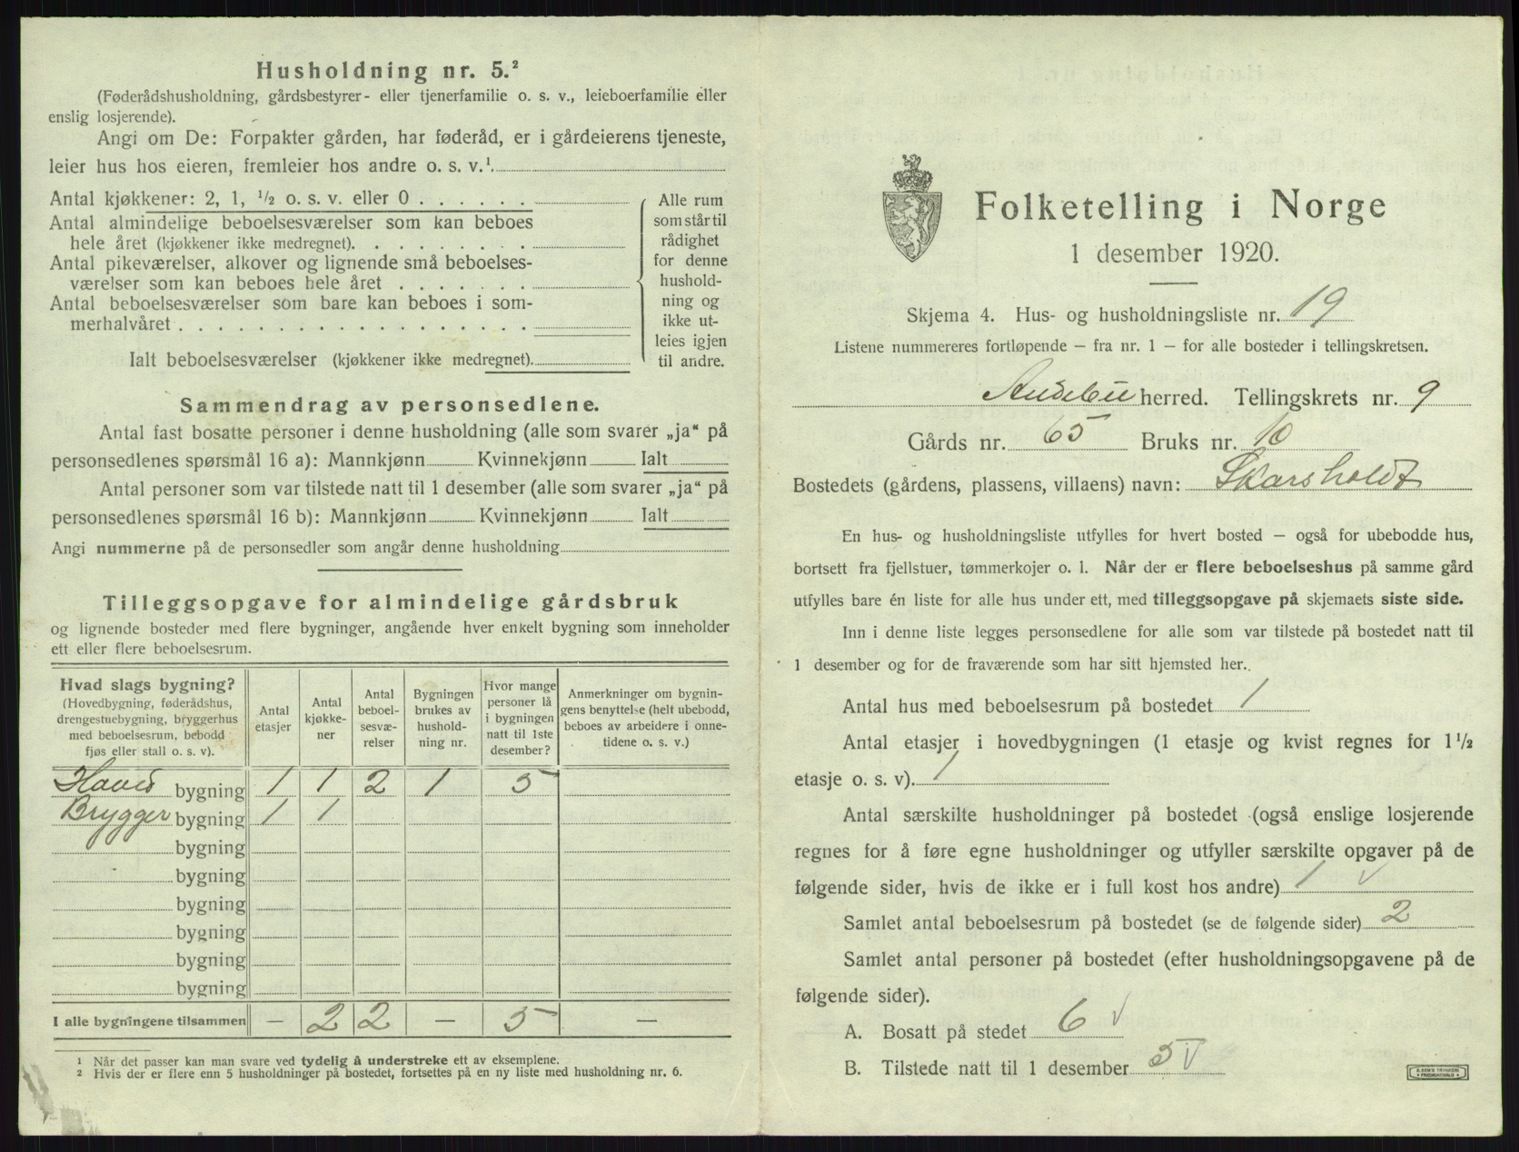 Husholdning nr. 5.²
(Føderådshusholdning, gårdsbestyrer- eller tjenerfamilie o. s. v., leieboerfamilie eller
enslig losjerende).
Angi om De: Forpakter gården, har føderåd, er i gårdeierens tjeneste,
leier hus hos eieren, fremleier hos andre o. s. v.¹
Antal kjøkkener: 2, 1, ½ o. s. v. eller 0
Antal almindelige beboelsesværelser som kan beboes
hele året (kjøkkener ikke medregnet).
Antal pikeværelser, alkover og lignende små beboelses-
værelser som kan beboes hele året
Antal beboelsesværelser som bare kan beboes i som-
merhalvåret
Ialt beboelsesværelser (kjøkkener ikke medregnet).
Alle rum
som står til
rådighet
for denne
hushold-
ning og
ikke ut-
leies igjen
til andre.
Sammendrag av personsedlene.
Antal fast bosatte personer i denne husholdning (alle som svarer „ja“ på
personsedlenes spørsmål 16 a): Mannkjønn Kvinnekjønn Ialt
Antal personer som var tilstede natt til 1 desember (alle som svarer „ja“ på
personsedlenes spørsmål 16 b): Mannkjønn Kvinnekjønn Ialt
Angi nummerne på de personsedler som angår denne husholdning
Tilleggsopgave for almindelige gårdsbruk
og lignende bosteder med flere bygninger, angående hver enkelt bygning som inneholder
ett eller flere beboelsesrum.
Hvad slags bygning?
(Hovedbygning, føderådshus,
drengestuebygning, bryggerhus
med beboelsesrum, bebodd
fjøs eller stall o. s. v).
Antal
etasjer
Antal
kjøkke-
ner
Antal
beboel-
sesvæ-
relser
Bygningen
brukes av
hushold-
ning nr.
Hvor mange
personer lå
i bygningen
natt til 1ste
desember?
Anmerkninger om bygnin-
gens benyttelse (helt ubebodd,
beboes av arbeidere i onne-
tidene o. s. v.)
Hoved bygning 1 1 2 1 5
Brygger bygning 1 1
bygning
bygning
bygning
bygning
bygning
bygning
I alle bygningene tilsammen — 2 2 — 5 —
¹ Når det passer kan man svare ved tydelig å understreke ett av eksemplene.
² Hvis der er flere enn 5 husholdninger på bostedet, fortsettes på en ny liste med husholdning nr. 6.
Folketelling i Norge
1 desember 1920.
Skjema 4. Hus- og husholdningsliste nr. 19
Listene nummereres fortløpende — fra nr. 1 — for alle bosteder i tellingskretsen.
Andebu herred. Tellingskrets nr. 9
Gårds nr. 65 Bruks nr. 10
Bostedets (gårdens, plassens, villaens) navn: Skarsholdt
En hus- og husholdningsliste utfylles for hvert bosted — også for ubebodde hus,
bortsett fra fjellstuer, tømmerkojer o. l. Når der er flere beboelseshus på samme gård
utfylles bare én liste for alle hus under ett, med tilleggsopgave på skjemaets siste side.
Inn i denne liste legges personsedlene for alle som var tilstede på bostedet natt til
1 desember og for de fraværende som har sitt hjemsted her.
Antal hus med beboelsesrum på bostedet 1
Antal etasjer i hovedbygningen (1 etasje og kvist regnes for 1½
etasje o. s. v). 1
Antal særskilte husholdninger på bostedet (også enslige losjerende
regnes for å føre egne husholdninger og utfyller særskilte opgaver på de
følgende sider, hvis de ikke er i full kost hos andre) 1 v
Samlet antal beboelsesrum på bostedet (se de følgende sider) 2
Samlet antal personer på bostedet (efter husholdningsopgavene på de
følgende sider).
A. Bosatt på stedet 6 v
B. Tilstede natt til 1 desember 5 v